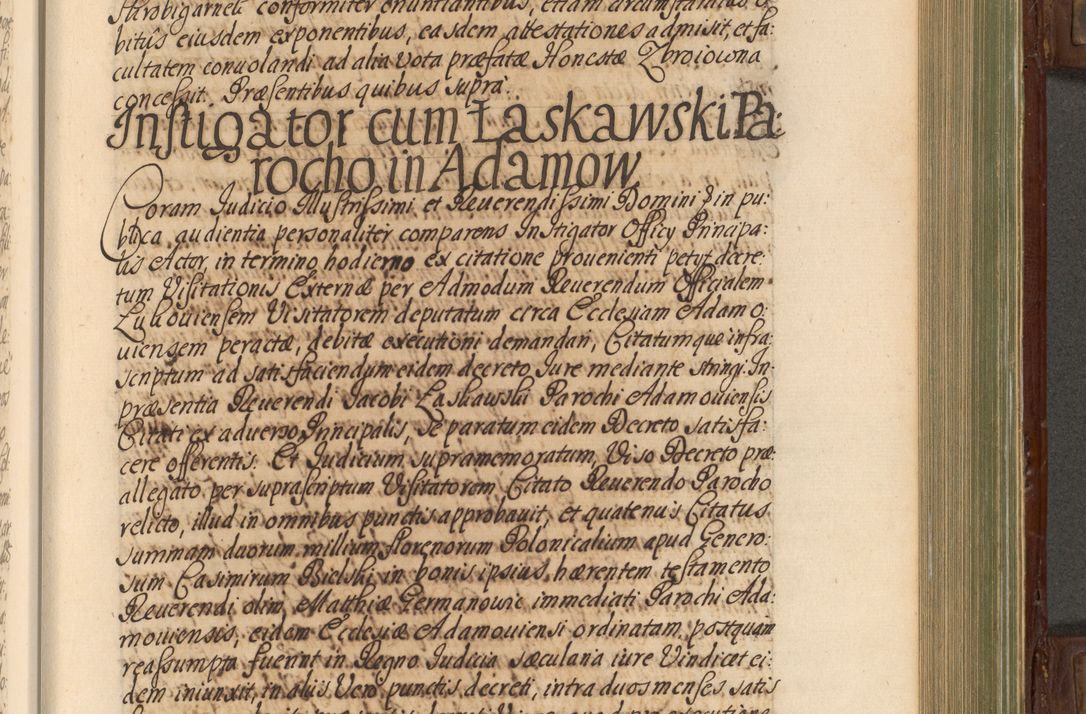 Skrobigarnek conformiter enuntiantibus, etiam circumstantiis
bitûs eiusdem exponentibus, easdem attestationes admisit, et fa:
cultatem convolandi ad alia vota præfatæ Honestæ Zbroiowna
concessit. Præsentibus quibus supra.
Instigator cum Łaskawski Pa:
rocho in Adamow
Coram Judicio Illustrissimi et Reverendissimi Domini in pu:
blica audientia personaliter comparens Instigator Officij Principa:
lis Actor, in termino hodierno ex citatione provenienti petyt decre:
tum Visitationis Externæ per Admodum Reverendum Officialem
Lukouiensem Visitatorem deputatum circa Ecclesiam Adamo:
uiensem peractæ, debitæ executioni demandari, Citatumque infra:
scriptum ad satisfaciendum eidem decreto Jure mediante stringi. In
præsentia Reverendi Jacobi Łaskawski Parochi Adamouiensis
Citati ex adverso Principalis, se paratum eidem Decreto satisfa:
cere offerentis. Et Judicium supramemoratum, Viso Decreto præ:
allegato per suprascriptum Visitatorem Citato Reverendo Parocho
relicto, illud in omnibus punctis approbauit, et quatenus Citatus
summam duorum millium florenorum Polonicalium apud Genero:
sum Casimirum Bielski in bonis ipsius hærentem testamento
Reverendi olim Matthiæ Germanowic immediati Parochi Ada:
mouiensis, eidem Ecclesiæ Adamouiensi ordinatam, postquam
reassumpta fuerint in Regno Judicia sæcularia iure Vindicet ei:
dem iniunxit, in alijs Vero punctis decreti, intra duos menses satis